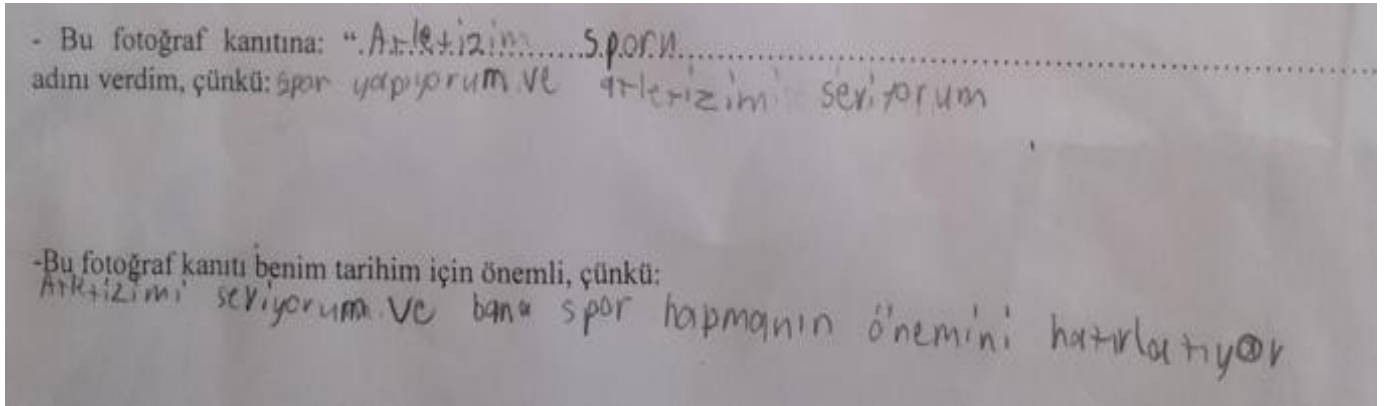 - Bu fotoğraf kanıtına: “.Artletizim......Sporu..........
adını verdim, çünkü: spor yapıyorum ve artletizimi seviyorum
-Bu fotoğraf kanıtı benim tarihim için önemli, çünkü:
Artletizimi seviyorum ve bana spor hapmanın önemini hatırlatıyor